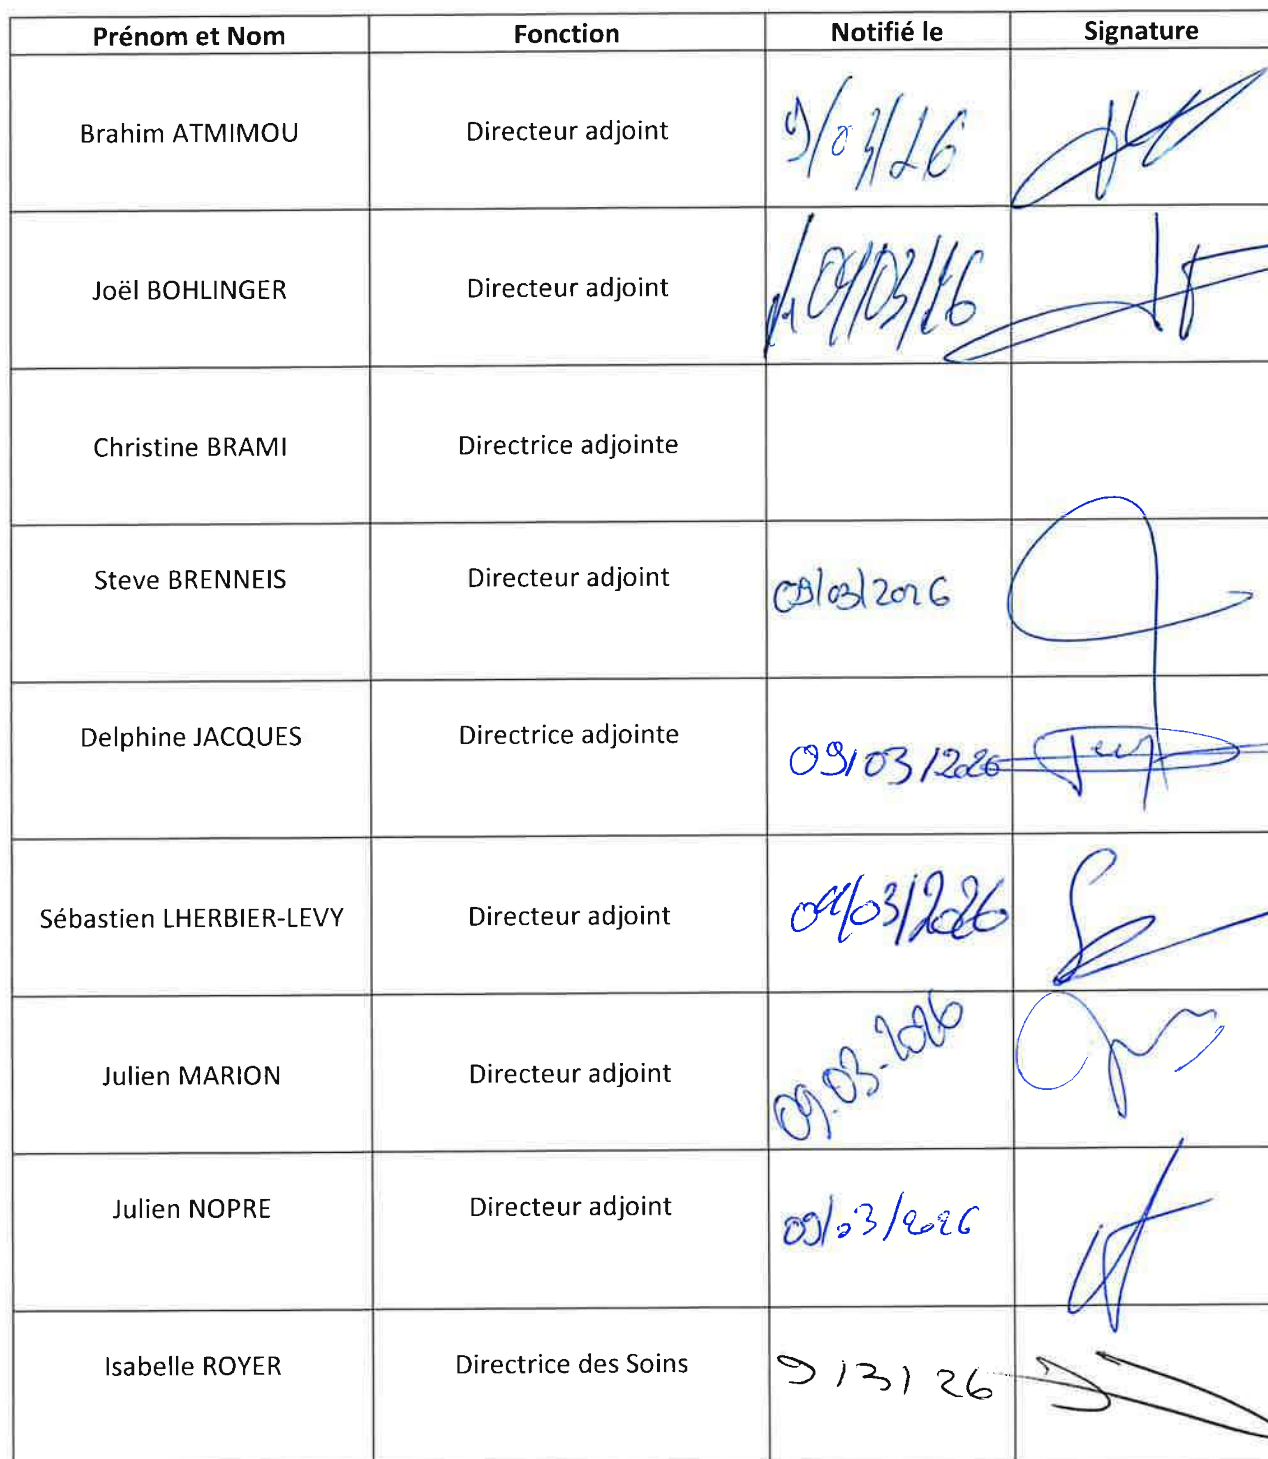 Prénom et Nom Fonction Notifié le Signature
Brahim ATMIMOU Directeur adjoint 9/03/26
Joël BOHLINGER Directeur adjoint 09/03/26
Christine BRAMI Directrice adjointe
Steve BRENNEIS Directeur adjoint 09/03/2026
Delphine JACQUES Directrice adjointe 09/03/2026
Sébastien LHERBIER-LEVY Directeur adjoint 09/03/2026
Julien MARION Directeur adjoint 09.03-2026
Julien NOPRE Directeur adjoint 09/03/2026
Isabelle ROYER Directrice des Soins 9/3/26